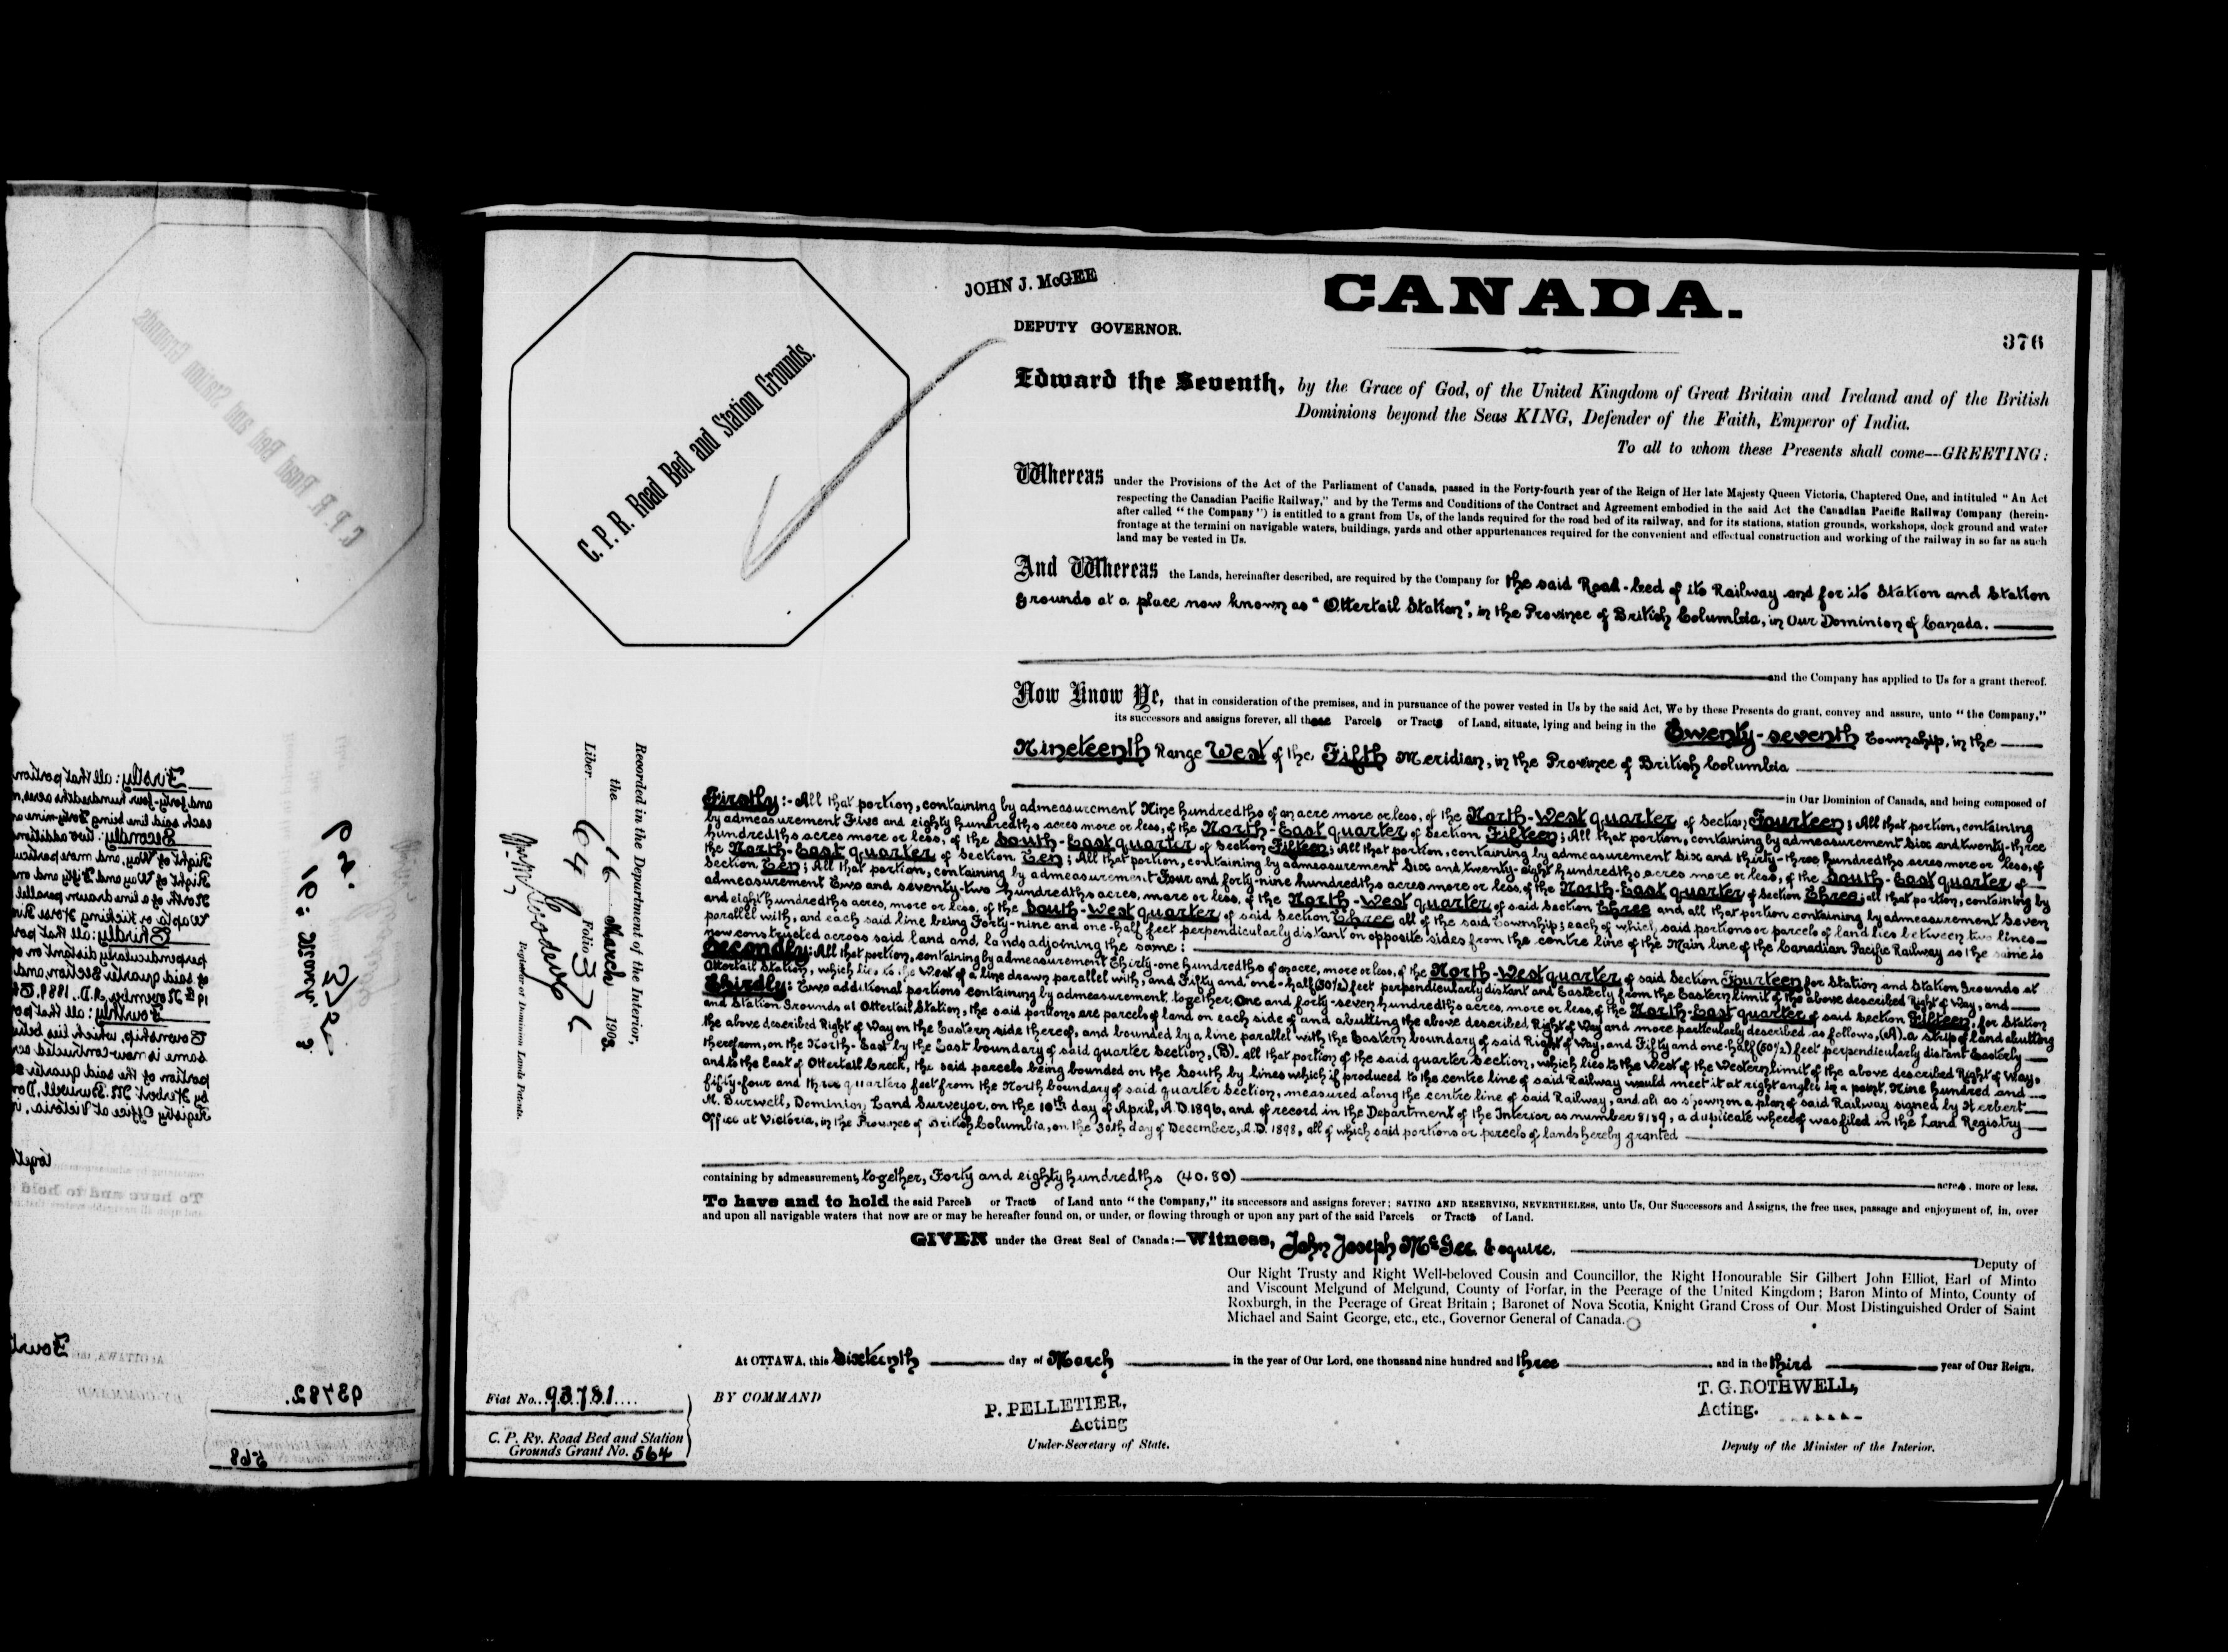 JOHN J. McGEE
DEPUTY GOVERNOR.
CANADA.
376
C. P. R. Road Bed and Station Grounds.
Edward the Seventh, by the Grace of God, of the United Kingdom of Great Britain and Ireland and of the British
Dominions beyond the Seas KING, Defender of the Faith, Emperor of India.
To all to whom these Presents shall come—GREETING:
Whereas under the Provisions of the Act of the Parliament of Canada, passed in the Forty-fourth year of the Reign of Her late Majesty Queen Victoria, Chaptered One, and intituled "An Act
respecting the Canadian Pacific Railway," and by the Terms and Conditions of the Contract and Agreement embodied in the said Act the Canadian Pacific Railway Company (herein-
after called "the Company") is entitled to a grant from Us, of the lands required for the road bed of its railway, and for its stations, station grounds, workshops, dock ground and water
frontage at the termini on navigable waters, buildings, yards and other appurtenances required for the convenient and effectual construction and working of the railway in so far as such
land may be vested in Us.
And Whereas the Lands, hereinafter described, are required by the Company for the said Road-bed of its Railway and for its Station and Station
Grounds at a place now known as "Ottertail Station", in the Province of British Columbia, in Our Dominion of Canada.
and the Company has applied to Us for a grant thereof.
Now Know Ye, that in consideration of the premises, and in pursuance of the power vested in Us by the said Act, We by these Presents do grant, convey and assure, unto "the Company,"
its successors and assigns forever, all those Parcels or Tracts of Land, situate, lying and being in the Twenty-seventh Township, in the
Nineteenth Range West of the Fifth Meridian, in the Province of British Columbia
in Our Dominion of Canada, and being composed of
Firstly:- All that portion, containing by admeasurement Nine hundredths of an acre more or less, of the North-West quarter of Section Fourteen; All that portion, containing
by admeasurement Five and eighty hundredths acres more or less, of the North-East quarter of Section Fifteen; All that portion, containing by admeasurement Six and twenty-three
hundredths acres more or less, of the South-East quarter of Section Fifteen; All that portion, containing by admeasurement Six and thirty-three hundredths acres more or less, of
the North-East quarter of Section Ten; All that portion, containing by admeasurement Six and twenty-eight hundredths acres more or less, of the South-East quarter of
Section Ten; All that portion, containing by admeasurement Four and forty-nine hundredths acres more or less, of the North-East quarter of Section Three; all that portion, containing by
admeasurement Two and seventy-two hundredths acres, more or less, of the North-West quarter of said Section Three and all that portion containing by admeasurement Seven
and eight hundredths acres, more or less, of the South-West quarter of said Section Three all of the said Township; each of which, said portions or parcels of land lies between two lines
parallel with, and each said line being Forty-nine and one-half feet perpendicularly distant on opposite sides from the centre line of the Main line of the Canadian Pacific Railway as the same is
now constructed across said land and, lands adjoining the same:
Secondly: All that portion, containing by admeasurement Thirty-one hundredths of an acre, more or less, of the North-West quarter of said Section Fourteen for Station and Station Grounds at
Ottertail Station, which lies to the West of a line drawn parallel with, and Fifty and one-half (50½) feet perpendicularly distant and Easterly from the Eastern limit of the above described Right of Way, and
Thirdly: Two additional portions containing by admeasurement together, One and forty-seven hundredths acres, more or less, of the North-East quarter of said Section Fifteen, for Station
and Station Grounds at Ottertail Station, the said portions are parcels of land on each side of and abutting the above described Right of Way and more particularly described as follows, (A). a strip of land abutting
the above described Right of Way on the Eastern side thereof, and bounded by a line parallel with the Eastern boundary of said Right of Way, and Fifty and one-half (50½) feet perpendicularly distant Easterly
therefrom, on the North-East by the East boundary of said quarter section, (B). all that portion of the said quarter Section, which lies to the West of the Western limit of the above described Right of Way,
and to the East of Ottertail Creek, the said parcels being bounded on the South by lines which if produced to the centre line of said Railway would meet it at right angles in a point, Nine hundred and
fifty-four and three quarters feet from the North boundary of said quarter Section, measured along the centre line of said Railway, and all as shown on a plan of said Railway signed by Herbert
M. Burwell, Dominion Land Surveyor, on the 10th day of April, A.D. 1896, and of record in the Department of the Interior as number 8159, a duplicate whereof was filed in the Land Registry
Office at Victoria, in the Province of British Columbia, on the 30th day of December, A.D. 1898, all of which said portions or parcels of lands hereby granted
containing by admeasurement, together, Forty and eighty hundredths (40.80) acres, more or less.
To have and to hold the said Parcels or Tracts of Land unto "the Company," its successors and assigns forever; SAVING AND RESERVING, NEVERTHELESS, unto Us, Our Successors and Assigns, the free uses, passage and enjoyment of, in, over
and upon all navigable waters that now are or may be hereafter found on, or under, or flowing through or upon any part of the said Parcels or Tracts of Land.
GIVEN under the Great Seal of Canada:—Witness, John Joseph McGee Esquire, Deputy of
Our Right Trusty and Right Well-beloved Cousin and Councillor, the Right Honourable Sir Gilbert John Elliot, Earl of Minto
and Viscount Melgund of Melgund, County of Forfar, in the Peerage of the United Kingdom; Baron Minto of Minto, County of
Roxburgh, in the Peerage of Great Britain; Baronet of Nova Scotia, Knight Grand Cross of Our Most Distinguished Order of Saint
Michael and Saint George, etc., etc., Governor General of Canada.
At OTTAWA, this Sixteenth day of March in the year of Our Lord, one thousand nine hundred and three and in the third year of Our Reign.
BY COMMAND
P. PELLETIER,
Acting
Under-Secretary of State.
T. G. ROTHWELL,
Acting.
Deputy of the Minister of the Interior.
Recorded in the Department of the Interior,
the 16 March 1903.
Liber 64 Folio 376
Registrar of Dominion Lands Patents.
Fiat No. 93781
C. P. Ry. Road Bed and Station
Grounds Grant No. 564